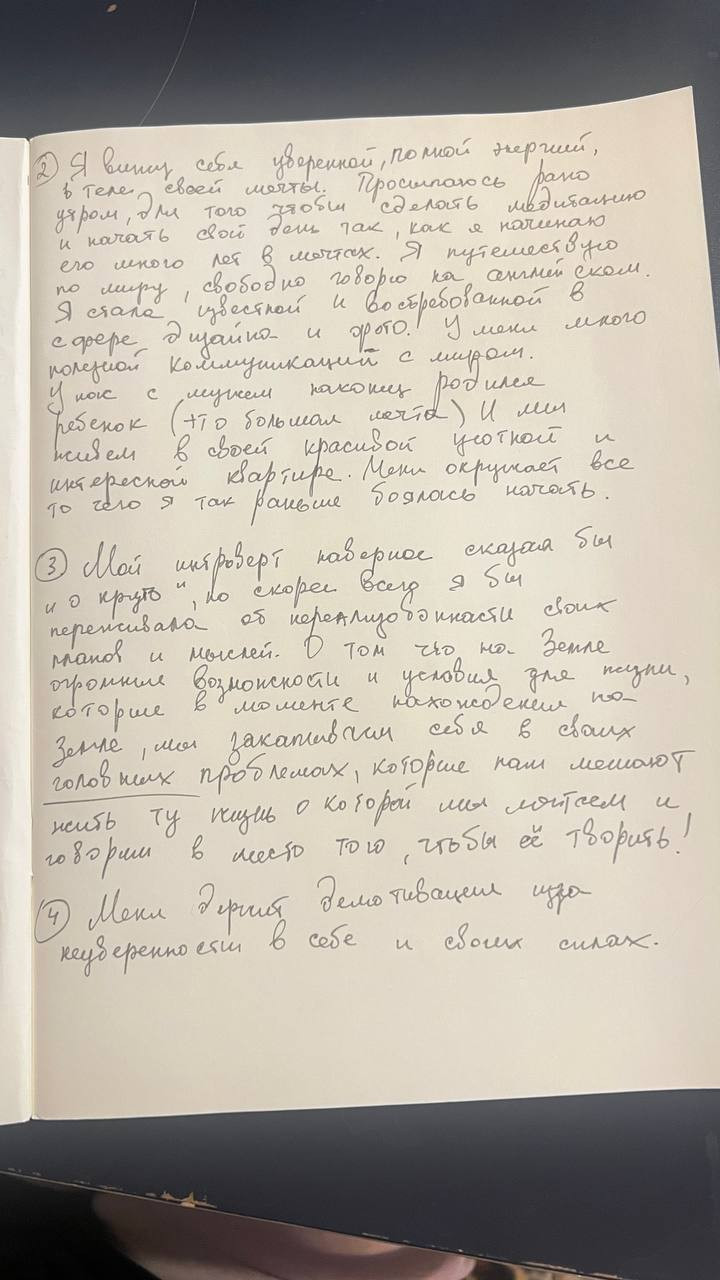 ② Я вижу себя уверенной, полной энергии,
в теле своей мечты. Просыпаюсь рано
утром, для того чтобы сделать медитацию
и начать свой день так, как я начинаю
его много лет в мечтах. Я путешествую
по миру, свободно говорю на английском.
Я стала известной и востребованной в
сфере дизайна и фото. У меня много
полезной коммуникаций с миром.
У нас с мужем наконец родился
ребенок (это большая мечта) И мы
живем в своей красивой уютной и
интересной квартире. Меня окружает все
то чего я так раньше боялась начать.
③ Мой интроверт наверное сказал бы
"о круто", но скорее всего я бы
переживала об нереализованности своих
планов и мыслей. О том что на Земле
огромные возможности и условия для жизни,
которые в моменте нахождения на
Земле, мы закапываем себя в своих
головных проблемах, которые нам мешают
жить ту жизнь о которой мы мечтаем и
говорим в место того, чтобы её творить!
④ Меня держит демотивация изза
неуверенности в себе и своих силах.